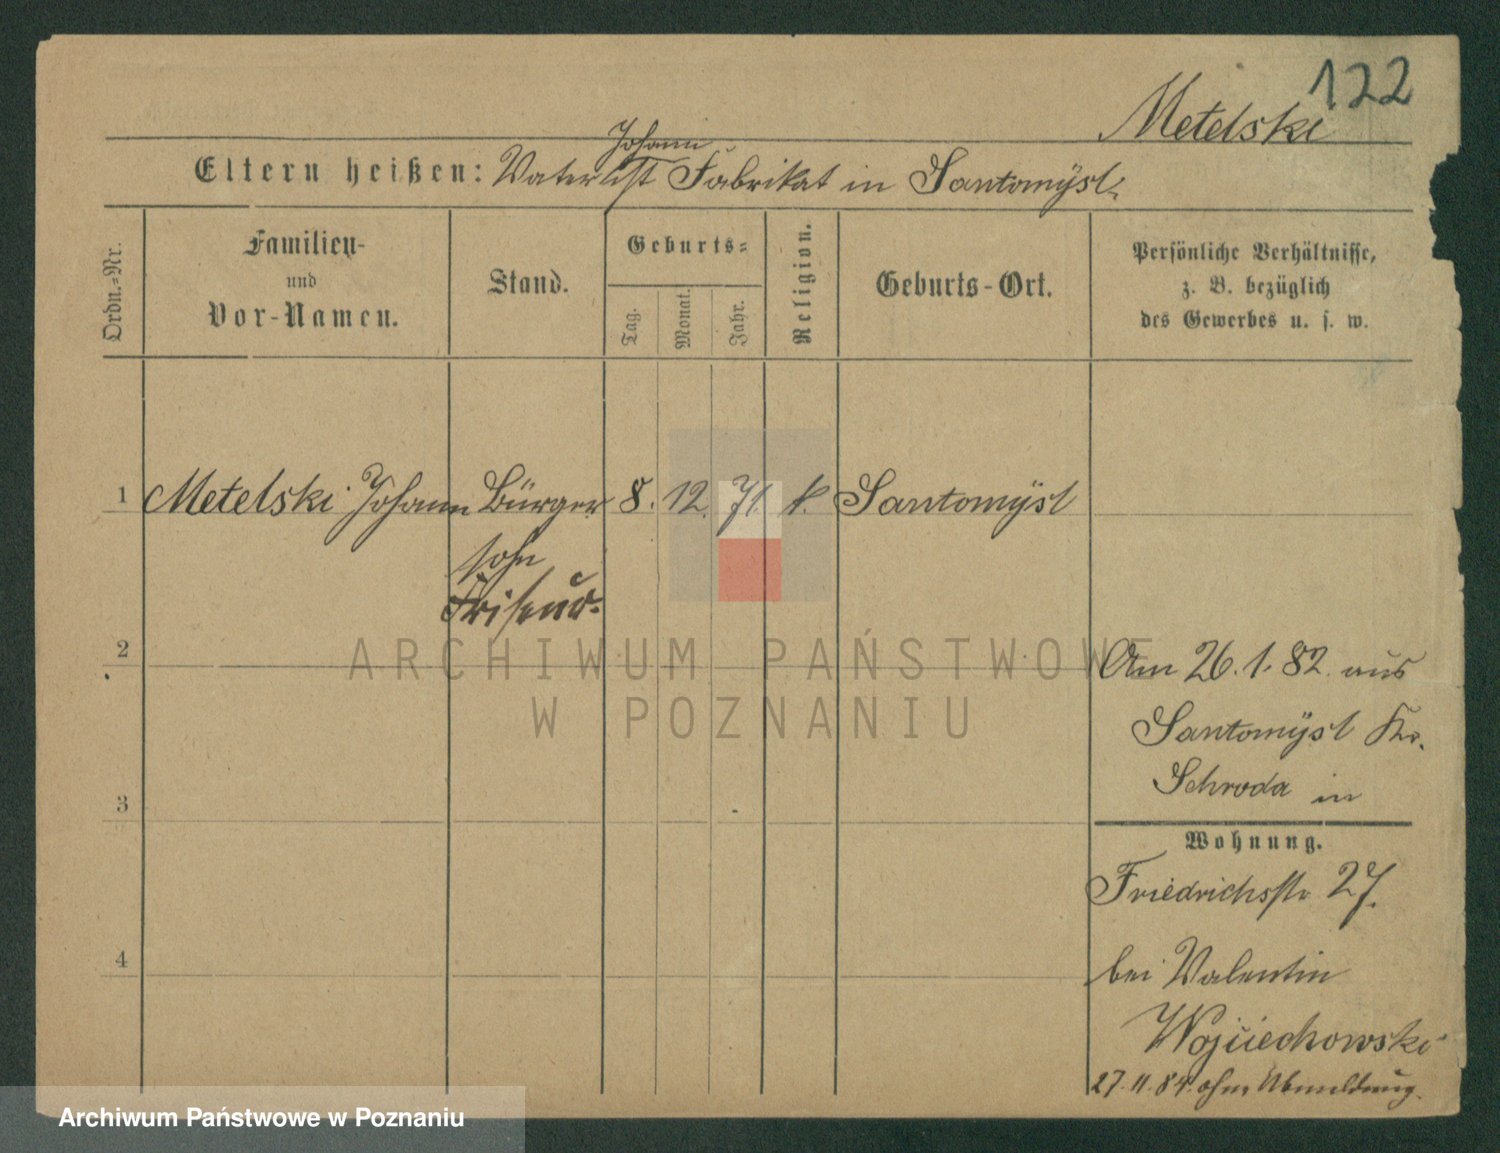 122
Metelski
Johann
Eltern heißen: Vater ist Fabrikat in Santomÿsl.
Ordn.-Nr.
Familien-
und
Vor-Namen.
Stand.
Geburts-
Tag.
Monat.
Jahr.
Religion.
Geburts-Ort.
Persönliche Verhältnisse,
z. B. bezüglich
des Gewerbes u. s. w.
1 Metelski Johann Bürger 8. 12. 71. k. Santomÿsl
sohn
Friseur.
2
Am 26.1.82. aus
Santomÿsl Kr.
Schroda in
3
Wohnung.
Friedrichsstr 27.
4
bei Valentin
Wojciechowski
27.11.84. ohne Abmeldung.
ARCHIWUM PAŃSTWOWE
W POZNANIU
Archiwum Państwowe w Poznaniu